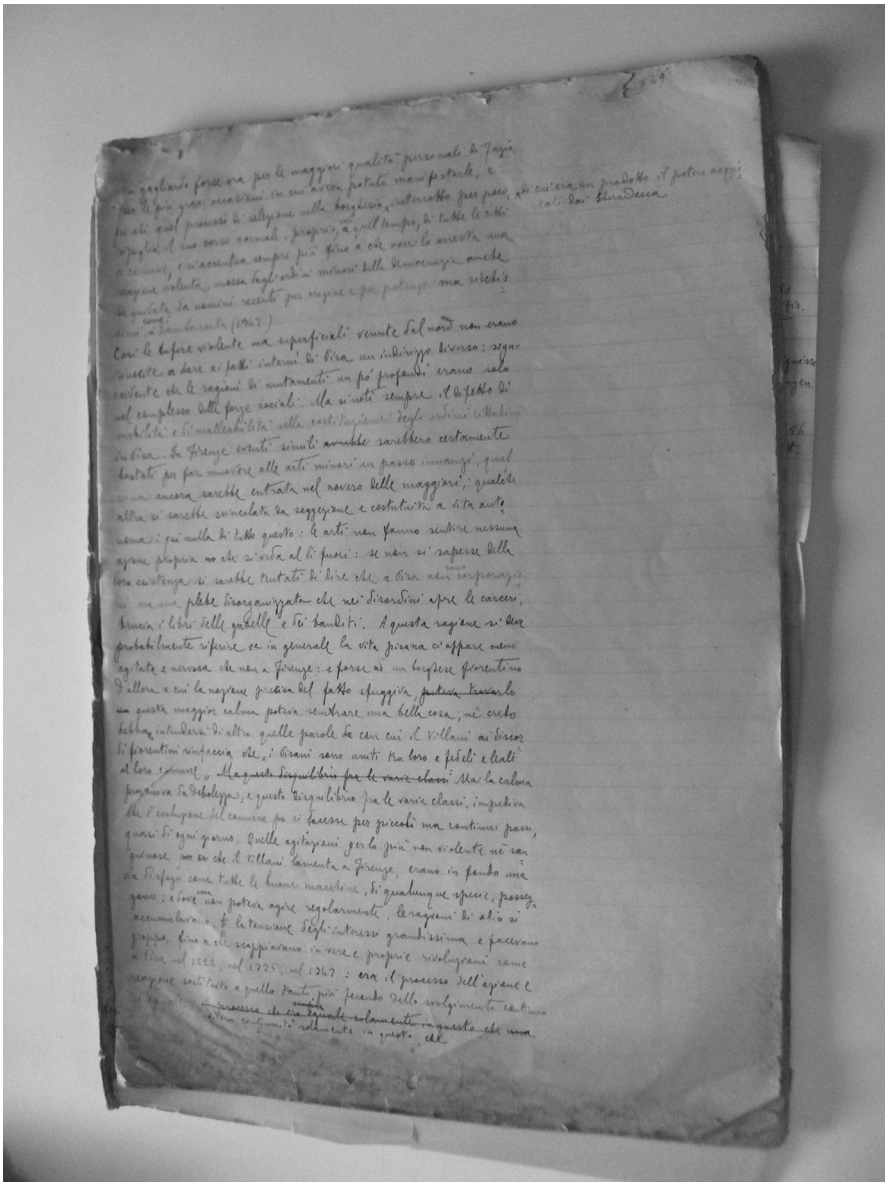 549
gagliardo forse ora per le maggiori qualità personali di Fazio,
per le più gravi occasioni in cui aveva potuto manifestarle, e
quel processo di selezione nella borghesia, interrotto per poco, di cui era un prodotto il potere acqui
stato dai Gherardesca
ripiglia il suo corso normale, proprio, a quel tempo, di tutte le città
a comune, e si accentua sempre più fino a che non lo arresta una
reazione violenta mossa dagli ordini minori della democrazia anche
se guidata da uomini recenti per origine e per potenza ma ricchis
simi come i Gambacorta (1347)
Così le bufere violente ma superficiali venute dal nord non erano
riuscite a dare ai fatti interni di Pisa un indirizzo diverso: segno
evidente che le ragioni di mutamenti un pò profondi erano solo
nel complesso delle forze sociali. Ma si noti sempre il difetto di
mobilità e di malleabilità nella costituzione degli ordini cittadini
in Pisa. In Firenze eventi simili avrebbe sarebbero certamente
bastati per far muovere alle arti minori un passo innanzi, qual
cuna ancora sarebbe entrata nel novero delle maggiori, qualche
altra si sarebbe svincolata da soggezione e costituita a vita auto
noma: qui nulla di tutto questo: le arti non fanno sentire nessuna
azione propria no che si veda al di fuori: se non si sapesse della
loro esistenza si sarebbe tentati di dire che a Pisa non corporazio
ni ma una plebe disorganizzata che nei disordini apre le carceri,
brucia i libri delle gabelle e dei banditi. A questa ragione si deve
probabilmente riferire se in generale la vita pisana ci appare meno
agitata e nervosa che non a Firenze: e forse ad un borghese fiorentino
d'allora a cui la nozione precisa del fatto sfuggiva, poteva trovarlo
questa maggior calma poteva sembrare una bella cosa; nè credo
debban intendersi di altro quelle parole con cui il Villani ai discor
di fiorentini rinfaccia che "i Pisani sono uniti tra loro e fedeli e leali
al loro comune". Ma questo disequilibrio fra le varie classi Ma la calma
proveniva da debolezza, e questo disequilibrio fra le varie classi, impediva
che l'evoluzione del comune si facesse per piccoli ma continui passi,
quasi di ogni giorno. Quelle agitazioni per lo più non violente nè san
guinose che il Villani lamenta a Firenze, erano in fondo una
via di sfogo come tutte le buone macchine, di qualunque specie, posseg
gono: e dove non poteva agire regolarmente, le ragioni di odio si
accumulavano, la tensione degli interessi grandissima e facevano
groppo, fino a che scoppiavano in vere e proprie rivoluzioni come
a Pisa nel 1222, nel 1325, nel 1347: era il processo dell'azione e
reazione sostituito a quello tanto più fecondo dello svolgimento continuo
processo che era eguale solamente in questo che una
continuità solamente in questo, che